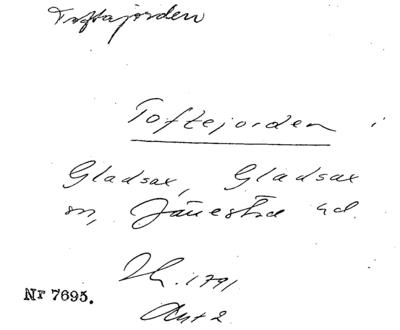 Toftajorden
Toftejorden i
Gladsax, Gladsax
sn, Järrestad hd.
1791
Nr 7695.
Akt 2